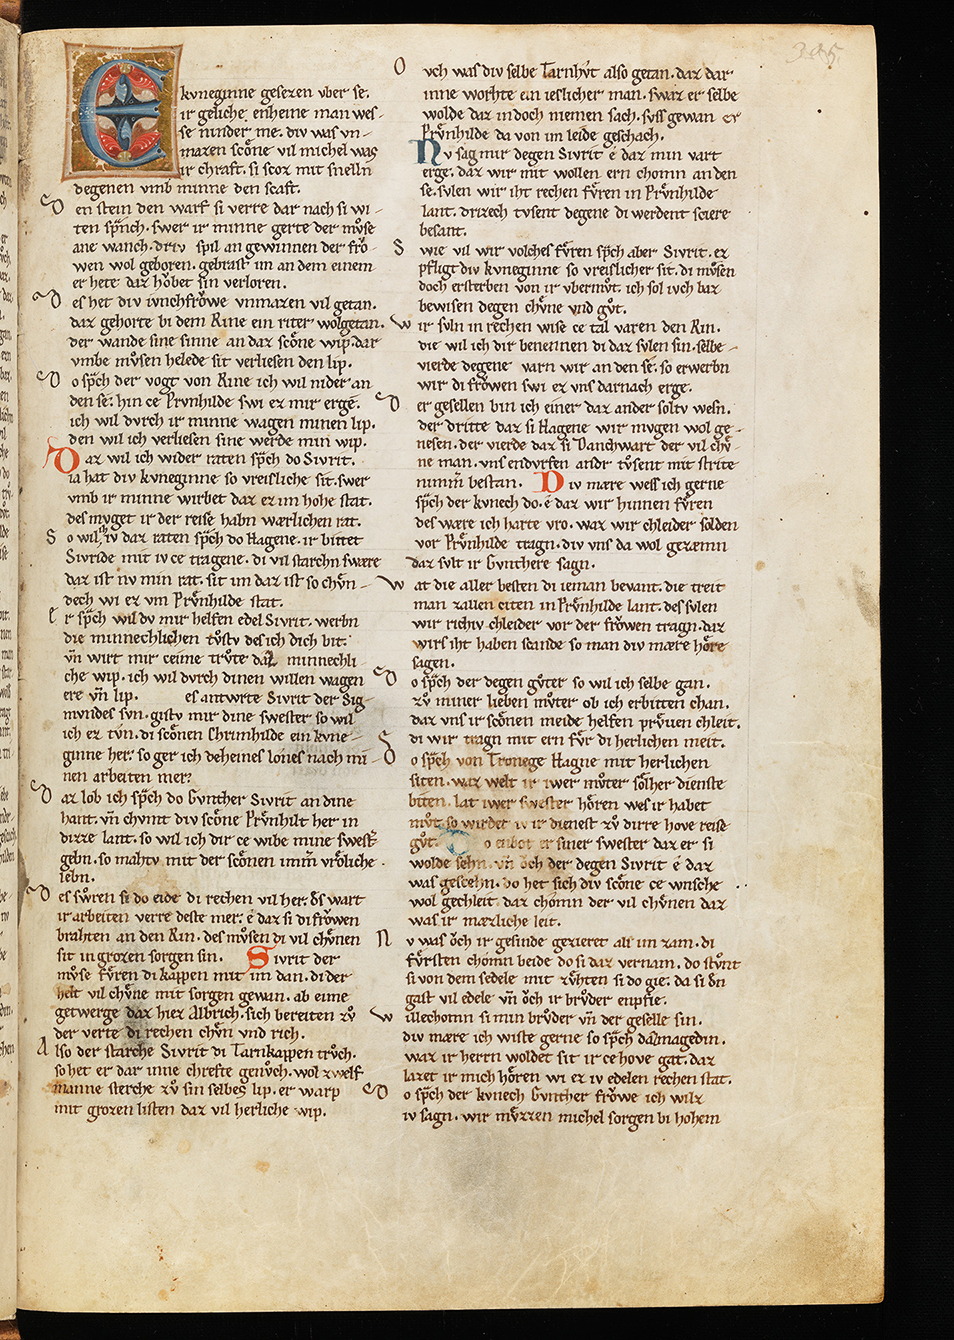 E kvneginne gesezen vber se.
ir geliche enheine man wes-
se ninder me. div was vn-
mazen scoͤne vil michel was
ir chraft. si scoz mit snelln
degenen vmb minne den scaft.
D en stein den warf si verre dar nach si wi-
ten sp̄nch. swer ir minne gerte der mvͦse
ane wanch. driv spil an gewinnen der frǒ-
wen wol geboren. gebrast im an dem einem
er hete daz hoͮbet sin verloren.
D es het div ivnchfroͮwe vnmazen vil getan.
daz gehorte bi dem Rine ein riter wolgetan.
der wande sine sinne an daz scoͤne wip. dar
vmbe mvͦsen helede sit verliesen den lip.
D o sp̄ch der vogt von Rine ich wil nider an
den se. hin ce Prvnhilde swi ez mir erge.
ich wil dvrch ir minne wagen minen lip.
den wil ich verliesen sine werde min wip.
D az wil ich wider raten sp̄ch do Sivrit.
ia hat div kvneginne so vreisliche sit. swer
vmb ir minne wirbet daz ez im hohe stat.
des mvget ir der reise habn wærlichen rat.
S o wil ich iv daz raten sp̄ch do Hagene. ir bittet
Sivride mit iv ce tragene. di vil starchn swære
daz ist nv min rat. sit im daz ist so chvn-
dech wi ez vm Prvͤnhilde stat.
E r sp̄ch wil dv mir helfen edel Sivrit. werbn
die minnechlichen tvͦstv des ich dich bit.
vn̄ wirt mir ceime trvͦte daz minnechli
che wip. ich wil dvrch dinen willen wagen
ere vn̄ lip. es antwrte Sivrit der Sig-
mvndes svn. gistv mir dine swester so wil
ich ez tvͦn. di scoͤnen Chrimhilde ein kvne-
ginne her. so ger ich deheines lones nach mi-
nen arbeiten mer.
D az lob ich sp̄ch do Gvnther Sivrit an dine
hant. vn̄ chvmt div scoͤne Prvͤnhilt her in
dizze lant. so wil ich dir ce wibe mine swest̄
gebn. so mahtv mit der scoͤnen imm̄ vroͤliche
lebn.
D es swͦren si do eide di rechen vil her. d̄s wart
ir arbeiten verre deste mer. e daz si di froͮwen
brahten an den Rin. des mvͦsen di vil chvͤnen
sit in grozen sorgen sin. Sivrit der
mvͦse fvͤren di kappen mit im dan. di der
helt vil chvͤne mit sorgen gewan. ab eime
getwerge daz hiez Albrich. sich bereiten zvͦ
der verte di rechen chvͤn vnd rich.
A lso der starche Sivrit di Tarnkappen trvͦch.
so het er dar inne chrefte genvͦch. wol zwelf
manne sterche zvͦ sin selbes lip. er warp
mit grozen listen daz vil herliche wip.
O vch was div selbe Tarnhv̂t also getan. daz dar
inne worhte ein ieslicher man. swaz er selbe
wolde daz in doch niemen sach. svss gewan er
Prvͤnhilde da von im leide geschach.
N v sag mir degen Sivrit e daz min vart
erge. daz wir mit wollen ern chomn an den
se. svlen wir iht rechen fvͤren in Prvͤnhilde
lant. drizech tvsent degene di werdent sciere
besant.
S wie vil wir volches fvͤren sp̄ch aber Sivrit. ez
pfligt div kvneginne so vreislicher sit. di mvͦsen
doch ersterben von ir vbermvͦt. ich sol ivch baz
bewisen degen chvͤne vnd gvͦt.
W ir svln in rechen wise ce tal varen den Rin.
die wil ich dir benennen di daz svlen sin. selbe-
vierde degene varn wir an den se. so erwerbn
wir di froͮwen swi ez vns darnach erge.
D er gesellen bin ich einer daz ander soltv wesn.
der dritte daz si Hagene wir mvgen wol ge-
nesen. der vierde daz si Danchwart der vil chvͤ-
ne man. vns endvrfen andr tvͦsent mit strite
nimm̄ bestan. Div mære wess ich gerne
sp̄ch der kvnech do. e daz wir hinnen fvͤren
des wære ich harte vro. waz wir chleider solden
vor Prvͤnhilde tragn. div vns da wol gezæmn
daz svlt ir Gvnthere sagn.
W at die aller besten di ieman bevant. die treit
man zallen citen in Prvͤnhilde lant. des svlen
wir richiv chleider vor der froͮwen tragn. daz
wirs iht haben scande so man div mære hoͤre
sagen.
D o sp̄ch der degen gvͦter so wil ich selbe gan.
zvͦ miner lieben mvͦter ob ich erbitten chan.
daz vns ir scoͤnen meide helfen prvͤuen chleit.
di wir tragn mit ern fvͤr di herlichen meit.
D o sp̄ch von Tronege Hagne mit herlichen
siten. waz welt ir iwer mvͦter soͤlher dienste
biten. lat iwer swester hoͤren wes ir habet
mvͦt. so wirdet iv ir dienest zvͦ dirre hove reise
gvͦt. o enbot er siner swester daz er si
wolde sehn. vn̄ oͮch der degen Sivrit e daz
was gescehn. do het sich div scoͤne ce wnsche
wol gechleit. daz chomn der vil chvͤnen daz
was ir mæzliche leit.
N v was oͮch ir gesinde gezieret als im zam. di
fvͤrsten chomn beide do si daz vernam. do stvͦnt
si von dem sedele mit zvͤhten si do gie. da si d̄n
gast vil edele vn̄ oͮch ir brvͦder enpfie.
W illechomn si min brvͦder vn̄ der geselle sin.
div mære ich wiste gerne so sp̄ch daz magedin.
waz ir herrn woldet sit ir ce hove gat. daz
lazet ir mich hoͤren wi ez iv edelen rechen stat.
D o sp̄ch der kvnech Gvnther froͮwe ich wilz
iv sagn. wir mvͤzzen michel sorgen bi hohem